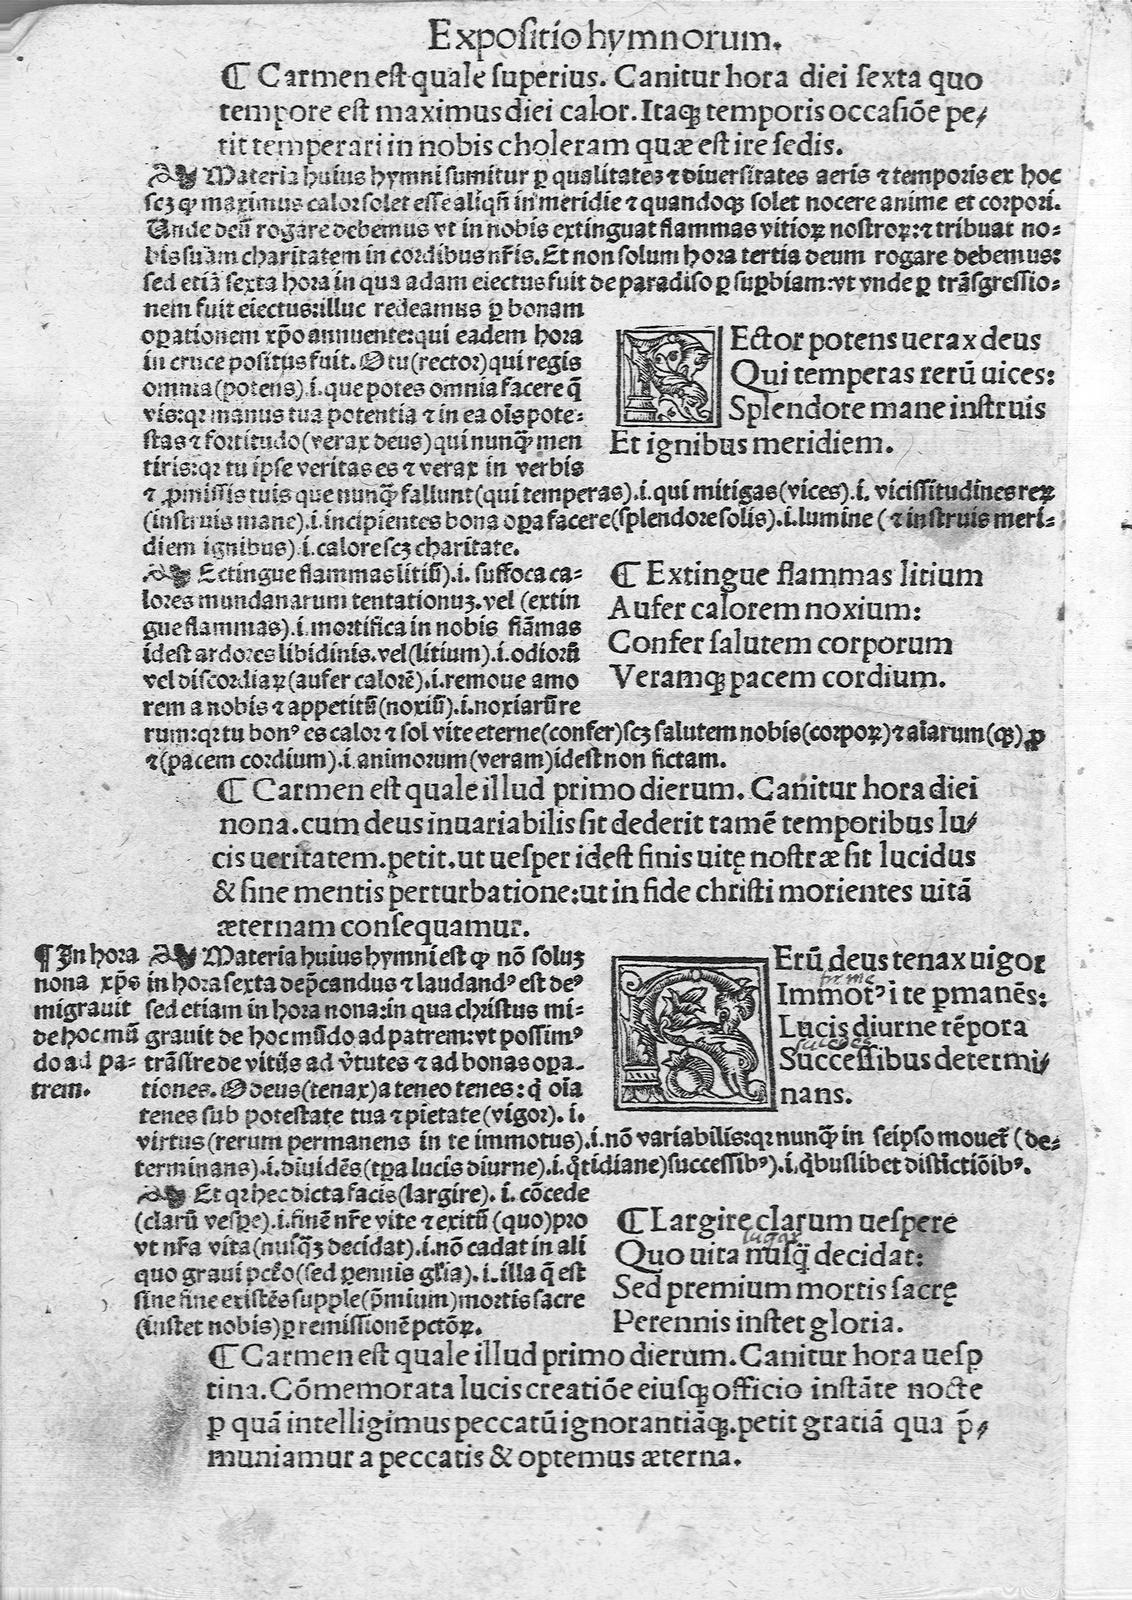 Expositio hymnorum.
¶ Carmen est quale superius. Canitur hora diei sexta quo
tempore est maximus diei calor. Itaqꝫ temporis occasiõe pe⸗
tit temperari in nobis choleram quæ est ire sedis.
Materia huius hymni sumitur ꝑ qualitates ⁊ diuersitates aeris ⁊ temporis ex hoc
scꝫ ꝙ maximus calor solet esse aliqñ in meridie ⁊ quandoqꝫ solet nocere anime et corpori.
Unde deũ rogare debemus vt in nobis extinguat flammas vitioꝝ nostroꝝ: ⁊ tribuat no⸗
bis suam charitatem in cordibus nr̃is. Et non solum hora tertia deum rogare debemus:
sed etiã sexta hora in qua adam eiectus fuit de paradiso ꝑ suꝑbiam: vt vnde ꝑ trãsgressio⸗
nem fuit eiectus: illuc redeamus ꝑ bonam
oꝑationem xp̃o annuente: qui eadem hora
in cruce positus fuit. O tu (rector) qui regis
omnia (potens) .i. que potes omnia facere q̃
vis: qꝛ manus tua potentia ⁊ in ea oĩs pote⸗
stas ⁊ fortitudo (verax deus) qui nunqᷓ men
tiris: qꝛ tu ipse veritas es ⁊ verax in verbis
⁊ ꝓmissis tuis que nunqᷓ fallunt (qui temperas) .i. qui mitigas (vices) .i. vicissitudines reꝝ
(instruis mane) .i. incipientes bona oꝑa facere (splendore solis) .i. lumine (⁊ instruis meri⸗
diem ignibus) .i. calore scꝫ charitate.
Ector potens uerax deus
Qui temperas rerũ uices:
Splendore mane instruis
Et ignibus meridiem.
Extingue flammas litiũ) .i. suffoca ca⸗
lores mundanarum tentationuꝫ. vel (extin
gue flammas) .i. mortifica in nobis flãmas
idest ardores libidinis. vel (litium) .i. odiorũ
vel discordiaꝝ (aufer calorẽ) .i. remoue amo
rem a nobis ⁊ appetitũ (noxiũ) .i. noxiarũ re
rum: qꝛ tu bonꝰ es calor ⁊ sol vite eterne (confer) scꝫ salutem nobis (corpoꝝ) ⁊ aĩarum (qꝫ) ꝓ
⁊ (pacem cordium) .i. animorum (veram) idest non fictam.
¶ Extingue flammas litium
Aufer calorem noxium:
Confer salutem corporum
Veramqꝫ pacem cordium.
¶ Carmen est quale illud primo dierum. Canitur hora diei
nona. cum deus inuariabilis sit dederit tamẽ temporibus lu⸗
cis ueritatem. petit. ut uesper idest finis uitę nostræ sit lucidus
& sine mentis perturbatione: ut in fide christi morientes uitã
æternam consequamur.
¶ In hora
nona xp̃s
migrauit
de hoc mũ
do ad pa⸗
trem.
Materia huius hymni est ꝙ nõ soluꝫ
in hora sexta dep̃candus ⁊ laudandꝰ est deꝰ
sed etiam in hora nona: in qua christus mi⸗
grauit de hoc mũdo ad patrem: vt possimꝰ
trãsire de vitijs ad v̓tutes ⁊ ad bonas oꝑa⸗
tiones. O deus (tenax) a teneo tenes: q̓ oĩa
tenes sub potestate tua ⁊ pietate (vigor) .i.
virtus (rerum permanens in te immotus) .i. nõ variabilis: qꝛ nunqᷓ in seipso mouet᷑ (de⸗
terminans) .i. diuidẽs (tꝑa lucis diurne) .i. q̓tidiane) successibꝰ) .i. q̓buslibet distictiõibꝰ.
Erũ deus tenax uigor
Immotꝰ i te ꝑmanẽs:
Lucis diurne tẽpora
Successibus determi⸗
nans.
Et qꝛ hec dicta facis (largire) .i. cõcede
(clarũ vesꝑe) .i. finẽ nr̃e vite ⁊ exitũ (quo) pro
vt nr̃a vita (nusqꝫ decidat) .i. nõ cadat in ali
quo graui pctõ (sed ꝑennis gl̃ia) .i. illa q̃ est
sine fine existẽs supple (p̃mium) mortis sacre
(instet nobis) ꝑ remissionẽ pctõꝝ.
¶ Largire clarum uespere
Quo uita nusq̃ decidat:
Sed premium mortis sacrę
Perennis instet gloria.
¶ Carmen est quale illud primo dierum. Canitur hora uesꝑ
tina. Cõmemorata lucis creatiõe eiusqꝫ officio instãte nocte
ꝑ quã intelligimus peccatũ ignorantiãqꝫ. petit gratiã qua p̃⸗
muniamur a peccatis & optemus æterna.